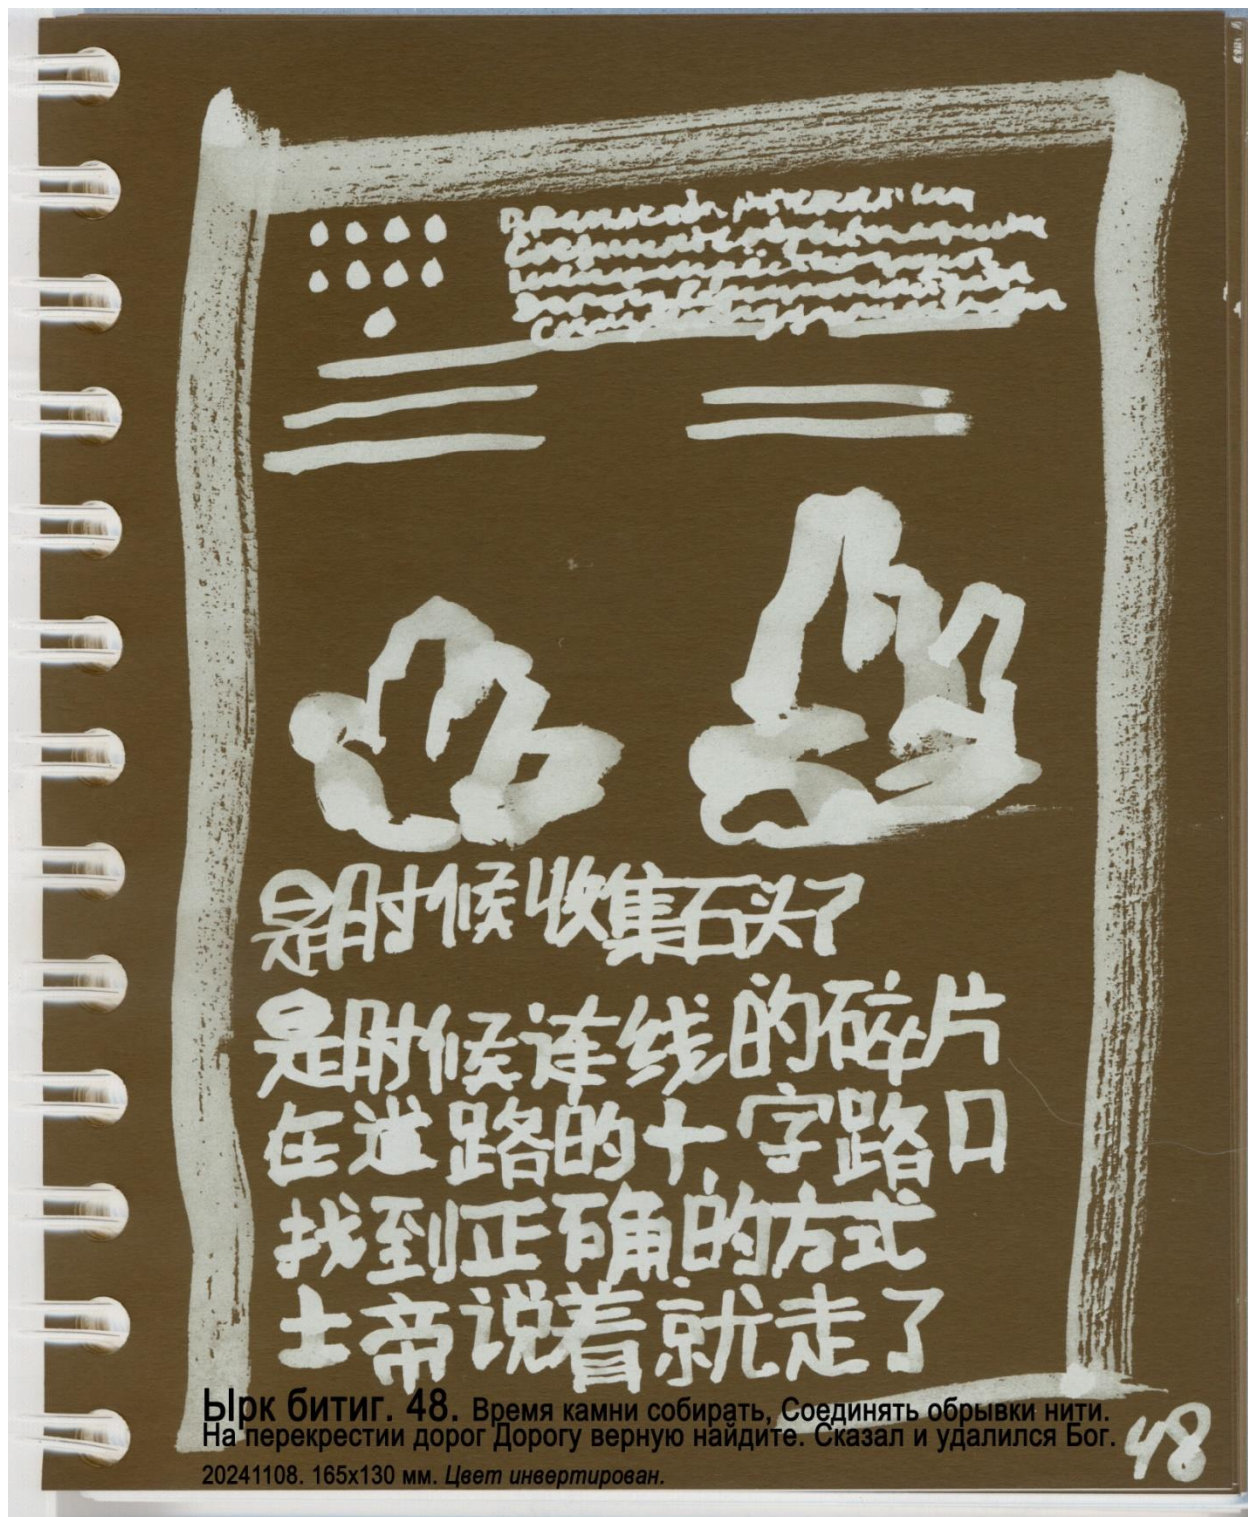 是时候收集石头了
是时候连线的碎片
在道路的十字路口
找到正确的方式
上帝说着就走了
Ырк битиг. 48. Время камни собирать, Соединять обрывки нити.
На перекрестии дорог Дорогу верную найдите. Сказал и удалился Бог.
20241108. 165x130 мм. Цвет инвертирован.
48